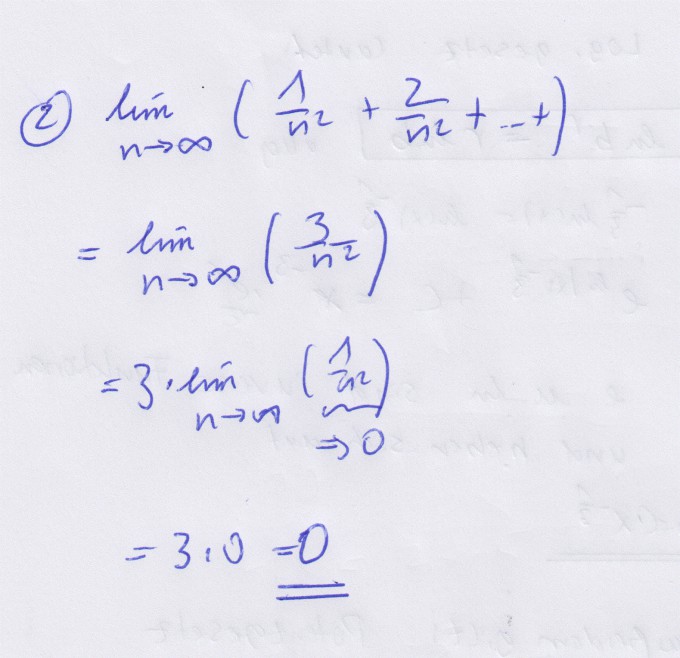 ② lim n→∞ ( 1/n² + 2/n² + ... + )
= lim n→∞ ( 3/n² )
= 3 · lim n→∞ ( 1/n² )
⇒ 0
= 3 · 0 = 0